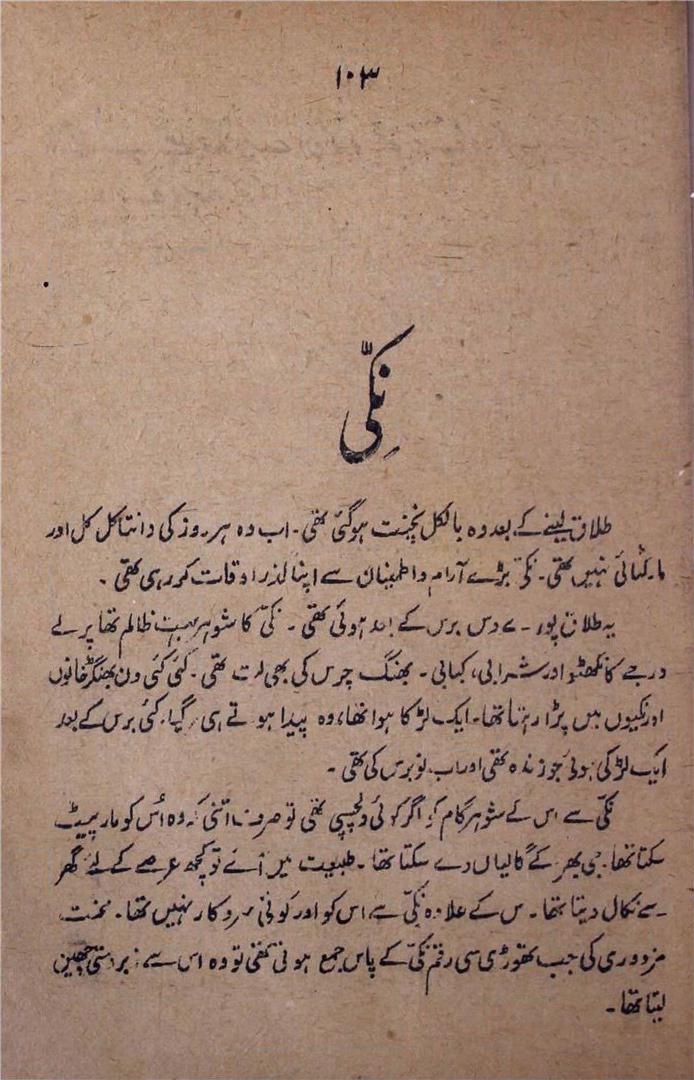 ۱۰۳
نکّی
طلاق لینے کے بعد وہ بالکل نچنت ہوگئی تھی۔ اب وہ ہر روز کی دانتا کل کل اور
مار کٹائی نہیں تھی۔ نکّی بڑے آرام و اطمینان سے اپنا گذر اوقات کر رہی تھی۔
یہ طلاق پورے دس برس کے بعد ہوئی تھی۔ نکّی کا شوہر بہت ظالم تھا پرلے
درجے کا نکھٹو اور شرابی، کبابی۔ بھنگ چرس کی بھی لت تھی۔ کئی کئی دن بھنگڑ خانوں
اور تکیوں میں پڑا رہتا تھا۔ ایک لڑکا ہوا تھا، وہ پیدا ہوتے ہی مر گیا۔ کئی برس کے بعد
ایک لڑکی ہوئی جو زندہ تھی اور اب نو برس کی تھی۔
نکّی سے اس کے شوہر گام کو اگر کوئی دلچسپی تھی تو صرف اتنی کہ وہ اُس کو مار پیٹ
سکتا تھا۔ جی بھر کے گالیاں دے سکتا تھا۔ طبیعت میں آئے تو کچھ عرصے کے لئے گھر
سے نکال دیتا تھا۔ اس کے علاوہ نکّی سے اس کو اور کوئی سروکار نہیں تھا۔ محنت
مزدوری کی جب تھوڑی سی رقم نکّی کے پاس جمع ہوتی تھی تو وہ اس سے زبردستی چھین
لیتا تھا۔